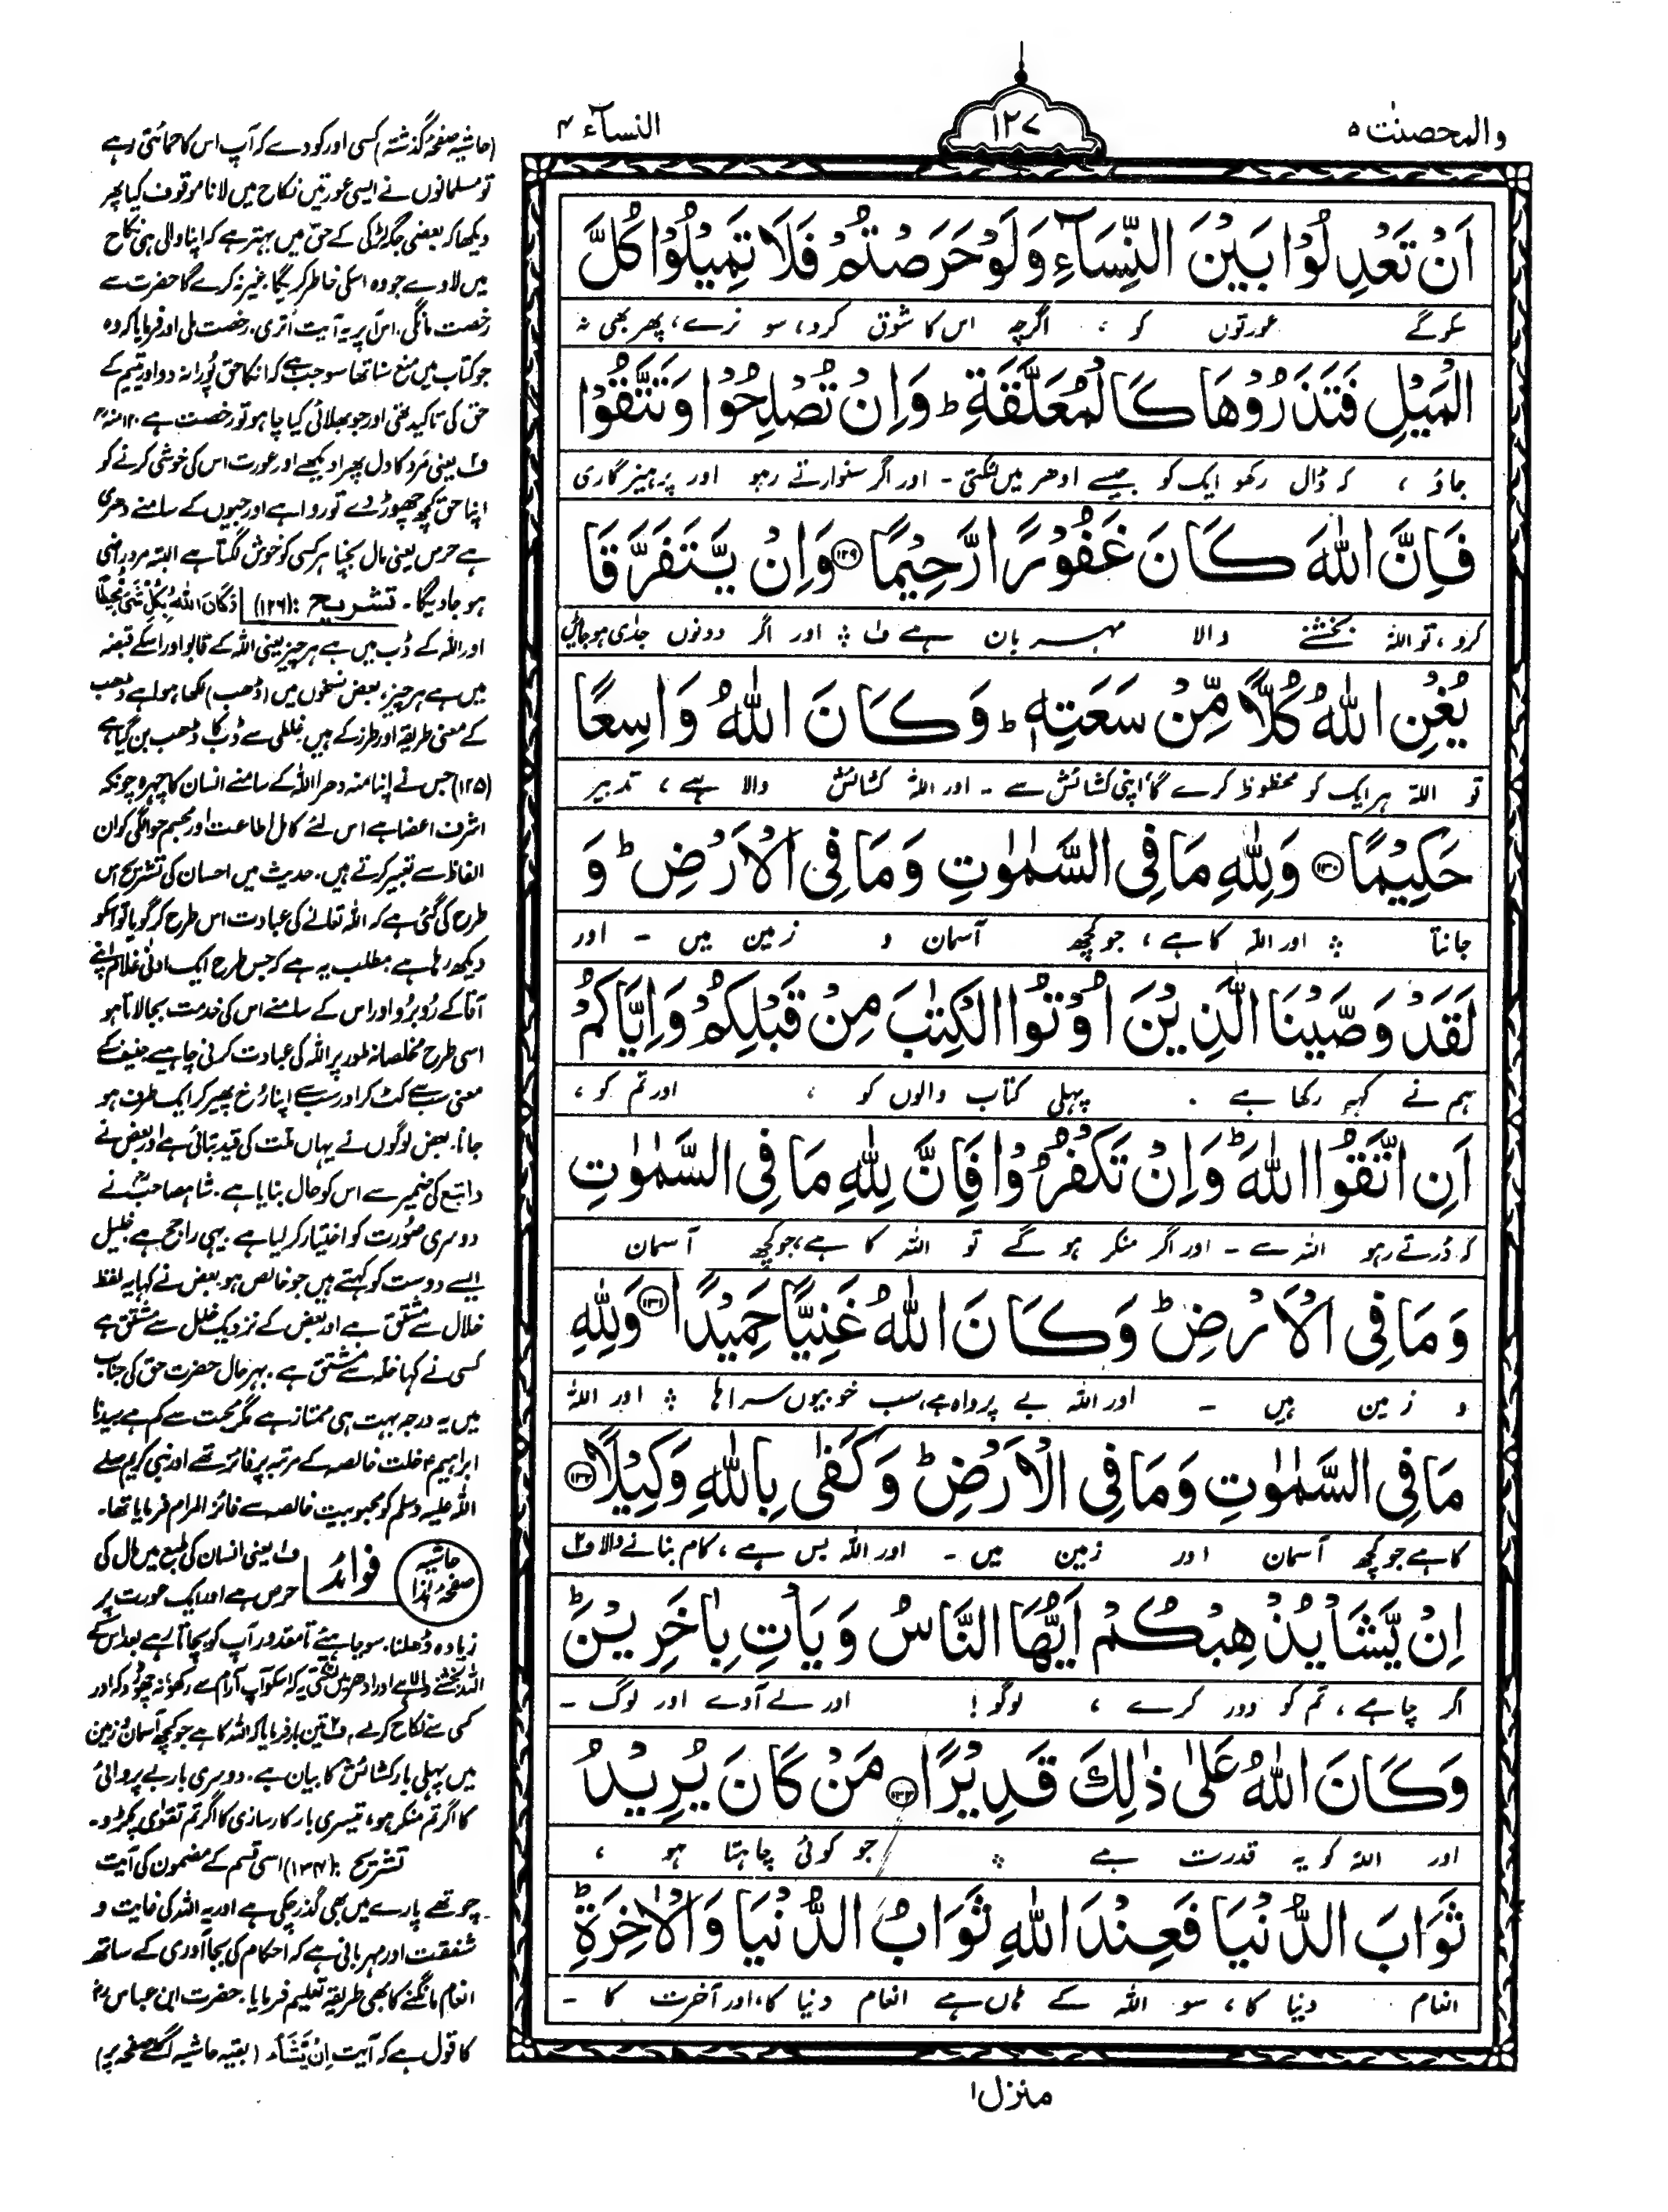 والمحصنت ۵
۱۲۷
النسآء ۴
اَنْ تَعْدِلُوْا بَيْنَ النِّسَآءِ وَلَوْ حَرَصْتُمْ فَلَا تَمِيْلُوْا كُلَّ
سکو گے عورتوں کو ، اگرچہ اس کا شوق کرو، سو نرے، پھر بھی نہ
الْمَيْلِ فَتَذَرُوْهَا كَالْمُعَلَّقَةِ ؕ وَاِنْ تُصْلِحُوْا وَتَتَّقُوْا
جاؤ ، کہ ڈال رکھو ایک کو جیسے ادھر میں لٹکتی ۔ اور اگر سنوارتے رہو اور پرہیزگاری
فَاِنَّ اللّٰهَ كَانَ غَفُوْرًا رَّحِيْمًا ﴿۱۲۹﴾ وَاِنْ يَّتَفَرَّقَا
کرو ، تو اللہ بخشنے والا مہربان ہے ف۱ ؞ اور اگر دونوں جدی ہو جائیں
يُغْنِ اللّٰهُ كُلًّا مِّنْ سَعَتِهٖ ؕ وَكَانَ اللّٰهُ وَاسِعًا
تو اللہ ہر ایک کو محظوظ کرے گا اپنی کشائش سے ۔ اور اللہ کشائش والا ہے ، تدبیر
حَكِيْمًا ﴿۱۳۰﴾ وَلِلّٰهِ مَا فِى السَّمٰوٰتِ وَمَا فِى الْاَرْضِ ؕ وَ
جانتا ؞ اور اللہ کا ہے ، جو کچھ آسمان و زمین میں ۔ اور
لَقَدْ وَصَّيْنَا الَّذِيْنَ اُوْتُوا الْكِتٰبَ مِنْ قَبْلِكُمْ وَاِيَّاكُمْ
ہم نے کہہ رکھا ہے . پہلی کتاب والوں کو ، اور تم کو ،
اَنِ اتَّقُوا اللّٰهَ ؕ وَاِنْ تَكْفُرُوْا فَاِنَّ لِلّٰهِ مَا فِى السَّمٰوٰتِ
کہ ڈرتے رہو اللہ سے ۔ اور اگر منکر ہو گے تو اللہ کا ہے، جو کچھ آسمان
وَمَا فِى الْاَرْضِ ؕ وَكَانَ اللّٰهُ غَنِيًّا حَمِيْدًا ﴿۱۳۱﴾ وَلِلّٰهِ
و زمین میں ۔ اور اللہ بے پرواہ ہے، سب خوبیوں سراہا ؞ اور اللہ
مَا فِى السَّمٰوٰتِ وَمَا فِى الْاَرْضِ ؕ وَكَفٰى بِاللّٰهِ وَكِيْلًا ﴿۱۳۲﴾
کا ہے جو کچھ آسمان اور زمین میں ۔ اور اللہ بس ہے ، کام بنانے والا ف۲
اِنْ يَّشَاْ يُذْهِبْكُمْ اَيُّهَا النَّاسُ وَيَاْتِ بِاٰخَرِيْنَ ؕ
اگر چاہے ، تم کو دور کرے ، لوگو ! اور لے آوے اور لوگ ۔
وَكَانَ اللّٰهُ عَلٰى ذٰلِكَ قَدِيْرًا ﴿۱۳۳﴾ مَنْ كَانَ يُرِيْدُ
اور اللہ کو یہ قدرت ہے ؞ جو کوئی چاہتا ہو ،
ثَوَابَ الدُّنْيَا فَعِنْدَ اللّٰهِ ثَوَابُ الدُّنْيَا وَالْاٰخِرَةِ ؕ
انعام دنیا کا ، سو اللہ کے ہاں ہے انعام دنیا کا، اور آخرت کا ۔
منزل ۱
(حاشیہ صفحہ گذشتہ) کسی اور کو دے کہ آپ اس کا حمائتی رہے
تو مسلمانوں نے ایسی عورتیں نکاح میں لانا موقوف کیا پھر
دیکھا کہ بعضی جگہ لڑکی کے حق میں بہتر ہے کہ اپنا والی ہی نکاح
میں لاوے جو وہ اسکی خاطر کریگا، غیر نہ کرے گا حضرت سے
رخصت مانگی، اس پر یہ آیت اُتری. رخصت ملی اور فرمایا کہ وہ
جو کتاب میں منع سنا تھا سو جب ہے کہ انکا حق پورا نہ دو اور یتیم کے
حق کی تاکید تھی اور جو بھلائی کیا چاہو تو رخصت ہے ۱۲ منہ
ف۲ یعنی مرد کا دل پھرا دیکھے اور عورت اس کی خوشی کرنے کو
اپنا حق کچھ چھوڑ دے تو روا ہے اور جیوں کے سامنے دھری
ہے حرص یعنی مال بچنا ہر کسی کو خوش لگتا ہے البتہ مرد راضی
ہو جاویگا ۔ تشریح :(۱۲۶) وَكَانَ اللّٰهُ بِكُلِّ شَىْءٍ مُّحِيْطًا
اور اللہ کے ڈب میں ہے ہر چیز یعنی اللہ کے قابو اور اسکے قبضہ
میں ہے ہر چیز، بعض نسخوں میں (ڈھب) لکھا ہوا ہے ڈھب
کے معنی طریقہ اور طرز کے ہیں غلطی سے ڈب کا ڈھب بن گیا ہے
(۱۲۵) جس نے اپنا منہ دھرا اللہ کے سامنے انسان کا چہرہ چونکہ
اشرف اعضا ہے اس لئے کامل اطاعت اور مجسم حوالگی کو ان
الفاظ سے تعبیر کرتے ہیں. حدیث میں احسان کی تشریح اس
طرح کی گئی ہے کہ اللہ تعالے کی عبادت اس طرح کر گویا تو اسکو
دیکھ رہا ہے مطلب یہ ہے کہ جس طرح ایک ادنیٰ غلام اپنے
آقا کے رُوبرُو اور اس کے سامنے اس کی خدمت بجا لاتا ہو
اسی طرح مخلصانہ طور پر اللہ کی عبادت کرنی چاہیے حنیف کے
معنی سب سے کٹ کر اور سب سے اپنا رُخ پھیر کر ایک طرف ہو
جانا. بعض لوگوں نے یہاں ملّت کی قید بتائی ہے اور بعض نے
واتبع کی ضمیر سے اس کو حال بنایا ہے. شاہ صاحبؒ نے
دوسری صُورت کو اختیار کر لیا ہے یہی راجح ہے خلیل
ایسے دوست کو کہتے ہیں جو خالص ہو بعض نے کہا یہ لفظ
خلال سے مشتق ہے اور بعض کے نزدیک خلل سے مشتق ہے
کسی نے کہا خلہ سے مشتق ہے. بہر حال حضرت حق کی جناب
میں یہ درجہ بہت ہی ممتاز ہے مگر محبت سے کم ہے سیدنا
ابراہیمؑ خلت خالصہ کے مرتبہ پر فائز تھے اور نبی کریم صلے
اللہ علیہ وسلم کو محبوبیت خالصہ سے فائز المرام فرمایا تھا۔
حاشیہ صفحہ ہذا
فوائد
ف۱ یعنی انسان کی طبع میں مال کی
حرص ہے اور ایک عورت پر
زیادہ ڈھلنا. سو چاہئے تا مقدور آپ کو بچاتا رہے بعد اس کے
اللہ بخشنے والا ہے اور ادھر میں لٹکتی یہ کہ اسکو آپ آرام سے رکھو، نہ چھوڑ دو کہ اور
کسی سے نکاح کرلے، ف۲ تین بار فرمایا کہ اللہ کا ہے جو کچھ آسمان و زمین
میں پہلی بار کشائش کا بیان ہے. دوسری بار بے پروائی
کا اگر تم منکر ہو، تیسری بار کارسازی کا اگر تم تقوٰی پکڑو۔
تشریح :(۱۳۴) اسی قسم کے مضمون کی آیت
چوتھے پارے میں بھی گذر چکی ہے اور یہ اللہ کی غایت و
شفقت اور مہربانی ہے کہ احکام کی بجا آوری کے ساتھ
انعام مانگنے کا بھی طریقہ تعلیم فرمایا. حضرت ابن عباسؓ
کا قول ہے کہ آیت اِنْ يَّشَاْ (بقیہ حاشیہ اگلے صفحہ پر)